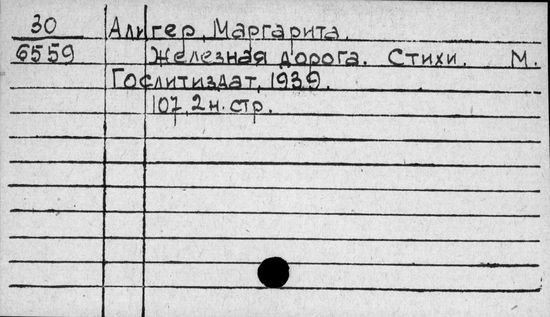 30 Алигер, Маргарита.
6559 Железная дорога. Стихи. М.
Гослитиздат, 1939.
107, 2 н. стр.